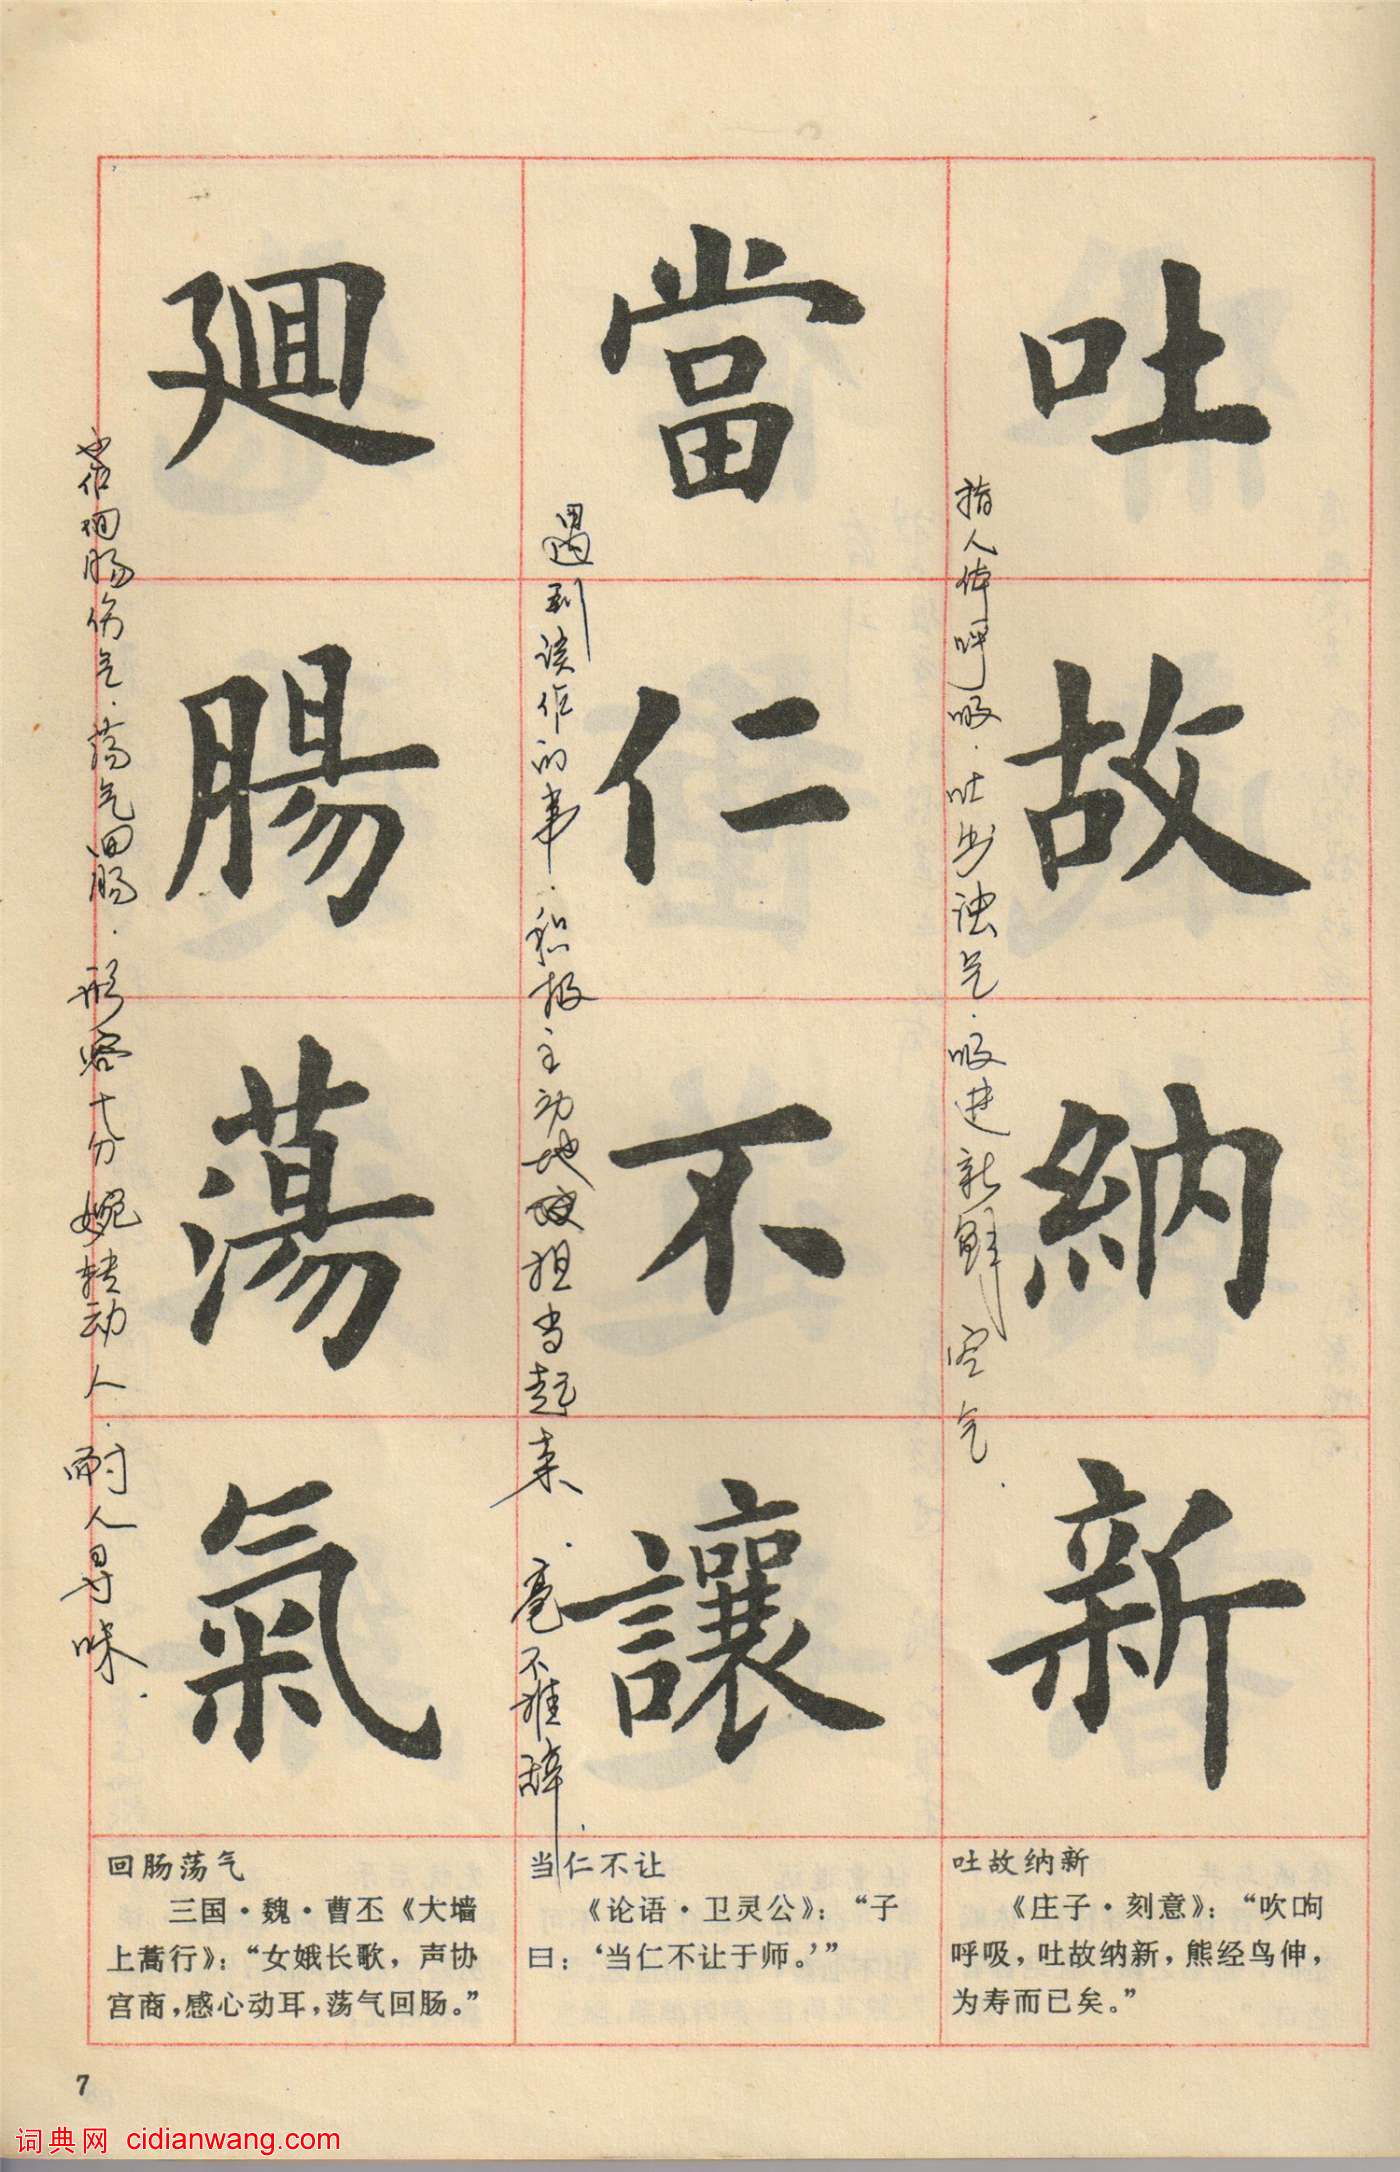 吐故納新
指人体呼吸.吐出浊气.吸进新鲜空气.
當仁不讓
遇到该作的事.积极主动地担当起来.毫不推辞.
廻腸蕩氣
也作回肠伤气.荡气回肠.形容十分婉转动人.耐人寻味.
吐故纳新
《庄子·刻意》：“吹呴
呼吸，吐故纳新，熊经鸟伸，
为寿而已矣。”
当仁不让
《论语·卫灵公》：“子
曰：‘当仁不让于师。’”
回肠荡气
三国·魏·曹丕《大墙
上蒿行》：“女娥长歌，声协
宫商，感心动耳，荡气回肠。”
7
词典网 cidianwang.com